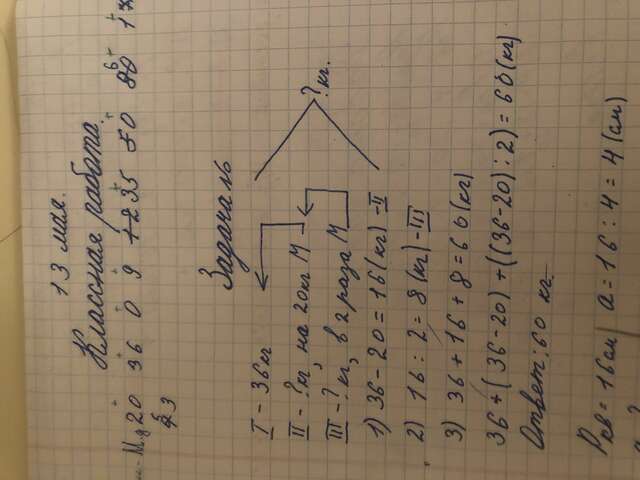 13 мая.
Классная работа.
20 36 0 9 35 50
Задача №6
I - 36 кг
II - ? кг, на 20 кг М
III - ? кг, в 2 раза М
? кг.
1) 36 - 20 = 16 (кг) - II
2) 16 : 2 = 8 (кг) - III
3) 36 + 16 + 8 = 60 (кг)
36 + (36 - 20) + ((36 - 20) : 2) = 60 (кг)
Ответ: 60 кг.
Pкв = 16 см a = 16 : 4 = 4 (см)